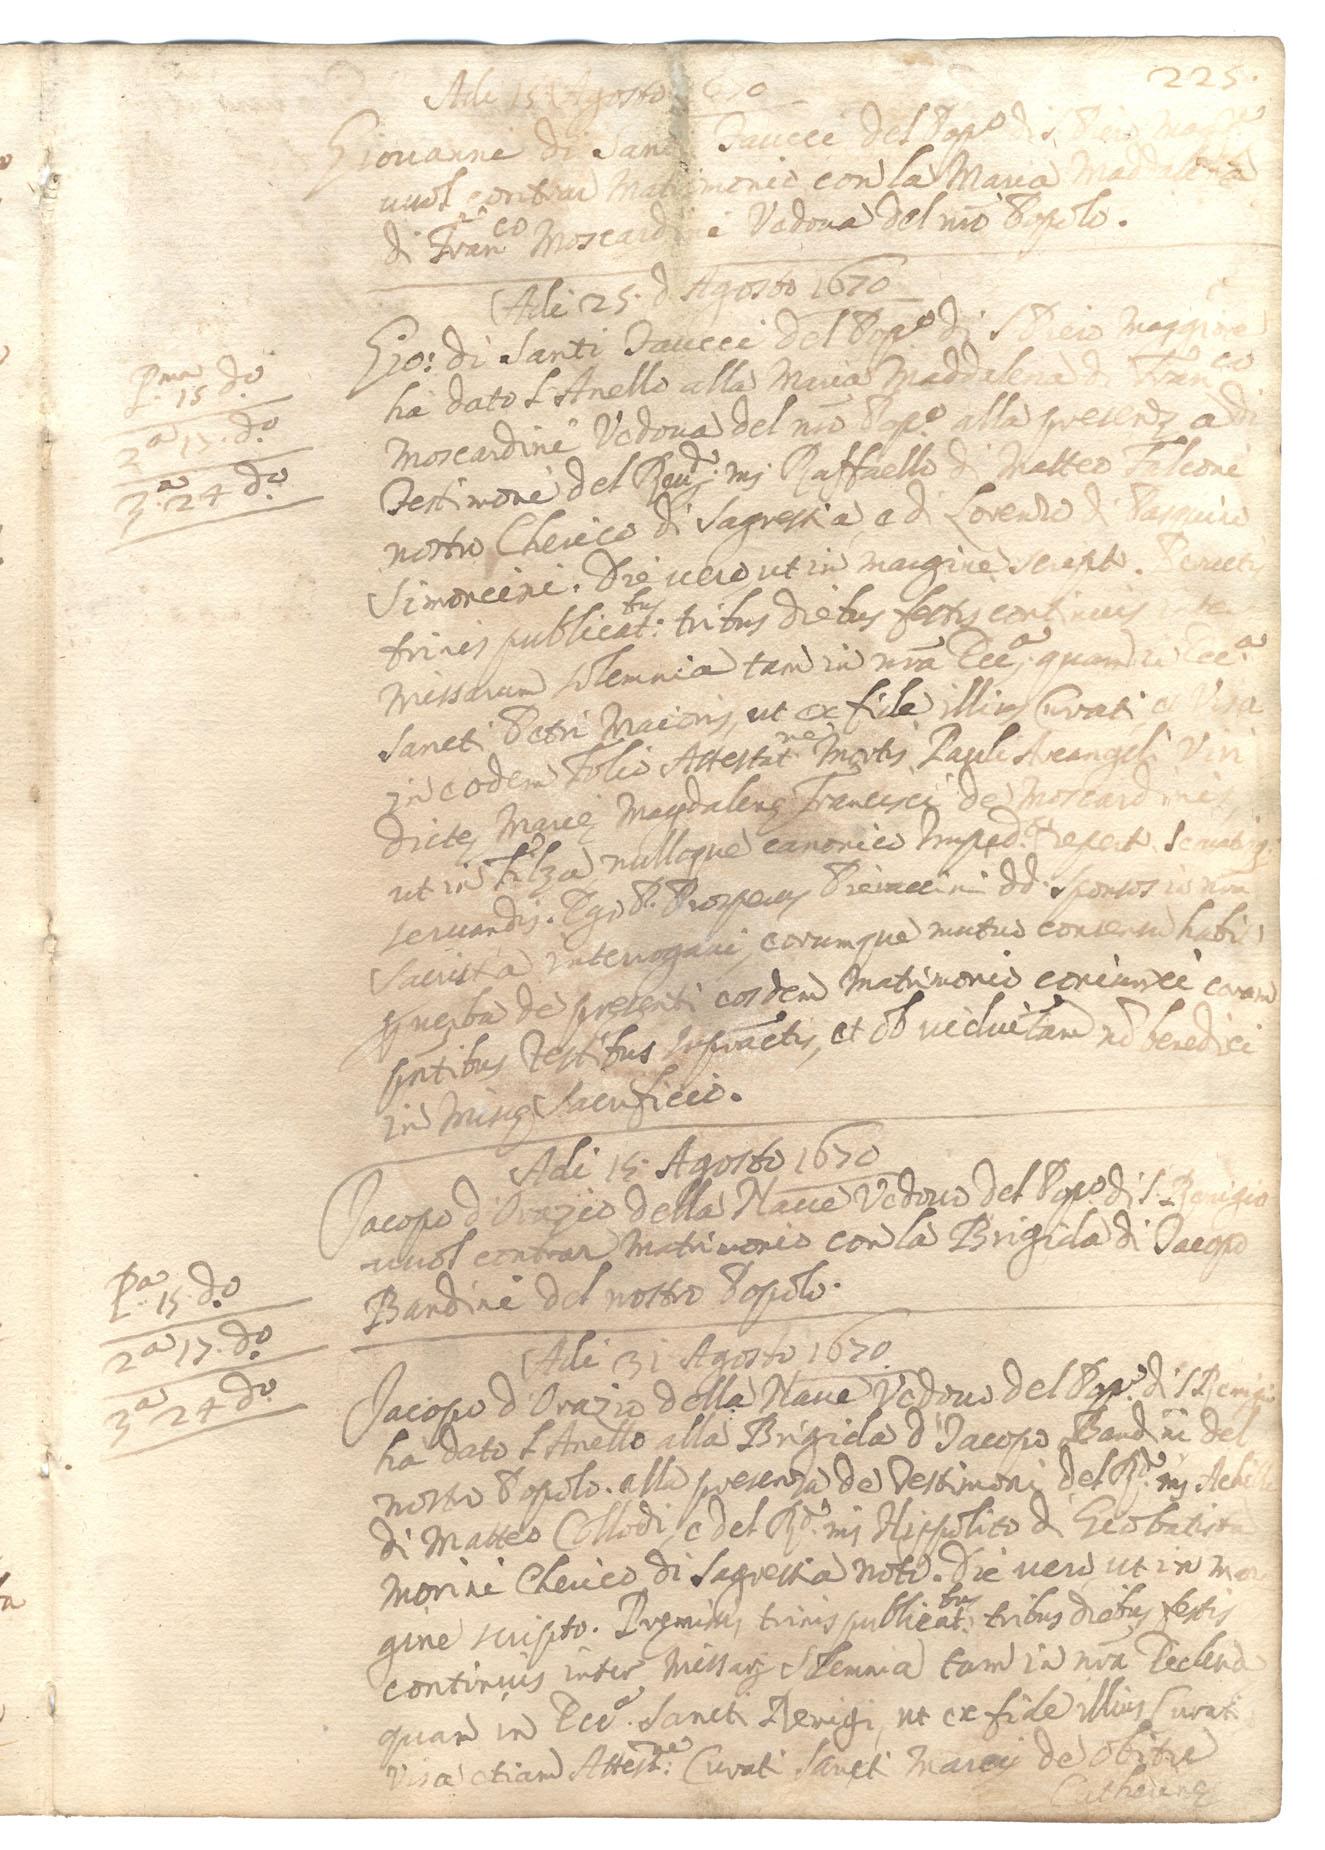 225.
Adi 15 Agosto 1670
Giouanni di Santi Taucci del Pop.o di S Piero Magg.e
uuol contrar Matrimonio con la Maria Maddalena
di Fran.co Moscardini Vedova del nrō Popolo.
Adi 25. d Agosto 1670
Gio: di Santi Taucci del Pop.o di S Piero Maggiore
ha dato L Anello alla Maria Maddalena d Fran.co
Moscardini Vedoua del nrō Pop.o alla presenza di
Testimoni del Reud.o mj Raffaello di Matteo Falconi
nostro Cherico di Sagrestia e di Lorenzo d Pasquino
Simoncini. Die uero ut in margine script.
trinis publicat.bus tribus diebus festis continuis inter
Missarum solemnia tam in nrā Ecc.a quam in Ecc.a
Sancti Petri Maioris, ut ex fide illius Curati, et Visa
in eodem folio Attestat.ne Mortis Pauli Arcangeli Viri
dictę Marię Magdalenę Francisci de Moscardinis,
ut in Filza nulloque canonico Imped.to repert. seruatisq
seruandis. Ego P. Prosperus Pieraccini dd. sponsos in nrā
Sacristia interrogaui, eorumque mutuo consensu habi
to p uerba de presenti eosdem Matrimonio coniunxi coram
pntibus Testibus supractis, et ob uiduitam nō benedixi
in Missę Sacrificio.
P.ma 15 d.o
2.a 17. d.o
3.a 24 d.o
Adi 15. Agosto 1670
Jacopo d Orazio della Naue Vedouo del Pop.o di S. Remigio
uuol contrar Matrimonio con la Brigida di Jacopo
Bandini del nostro Popolo.
Adi 31 Agosto 1670
Jacopo d Orazio della Naue Vedouo del Pop.o di S Remigi
ha dato L Anello alla Brigida d Jacopo Bandini del
nostro Popolo. alla presenza de Testimoni del R.do mj Achille
di Matteo Collodi, e del R.do mj Hippolito d Giobatista
Morini Cherico di Sagrestia notō. Die uero ut in mar
gine scripto. Premissis trinis publicat.bus tribus diebus festis
continuis inter Missarū solemnia tam in nrā Ecclesia
quam in Ecc.a Sancti Remigi, ut ex fide illius Curati
Visa etiam Attest.ne Curati Sancti Marci de Obitu
Catherinę
P.a 15. d.o
2.a 17. d.o
3.a 24 d.o